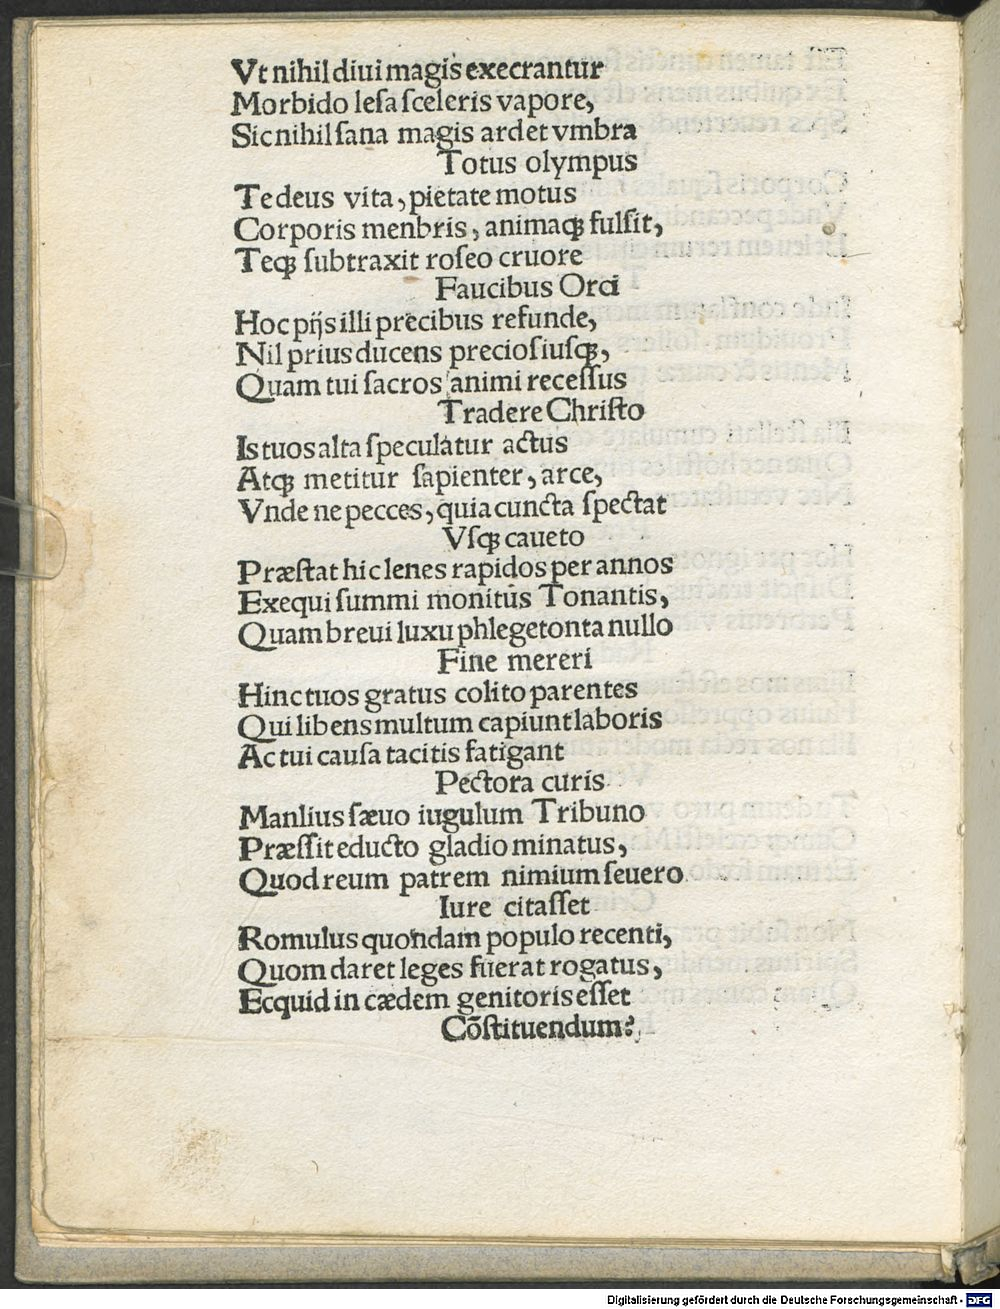 Vt nihil diui magis execrantur
Morbido lesa sceleris vapore,
Sic nihil sana magis ardet vmbra
Totus olympus
Te deus vita, pietate motus
Corporis menbris, animaqꝫ fulsit,
Teqꝫ subtraxit roseo cruore
Faucibus Orci
Hoc pijs illi precibus refunde,
Nil prius ducens preciosiusqꝫ,
Quam tui sacros animi recessus
Tradere Christo
Is tuos alta speculatur actus
Atqꝫ metitur sapienter, arce,
Vnde ne pecces, quia cuncta spectat
Vsqꝫ caueto
Præstat hic lenes rapidos per annos
Exequi summi monitus Tonantis,
Quam breui luxu phlegetonta nullo
Fine mereri
Hinc tuos gratus colito parentes
Qui libens multum capiunt laboris
Ac tui causa tacitis fatigant
Pectora curis
Manlius sæuo iugulum Tribuno
Præssit educto gladio minatus,
Quod reum patrem nimium seuero
Iure citasset
Romulus quondam populo recenti,
Quom daret leges fuerat rogatus,
Ecquid in cædem genitoris esset
Cõstituendum?
Digitalisierung gefördert durch die Deutsche Forschungsgemeinschaft - DFG